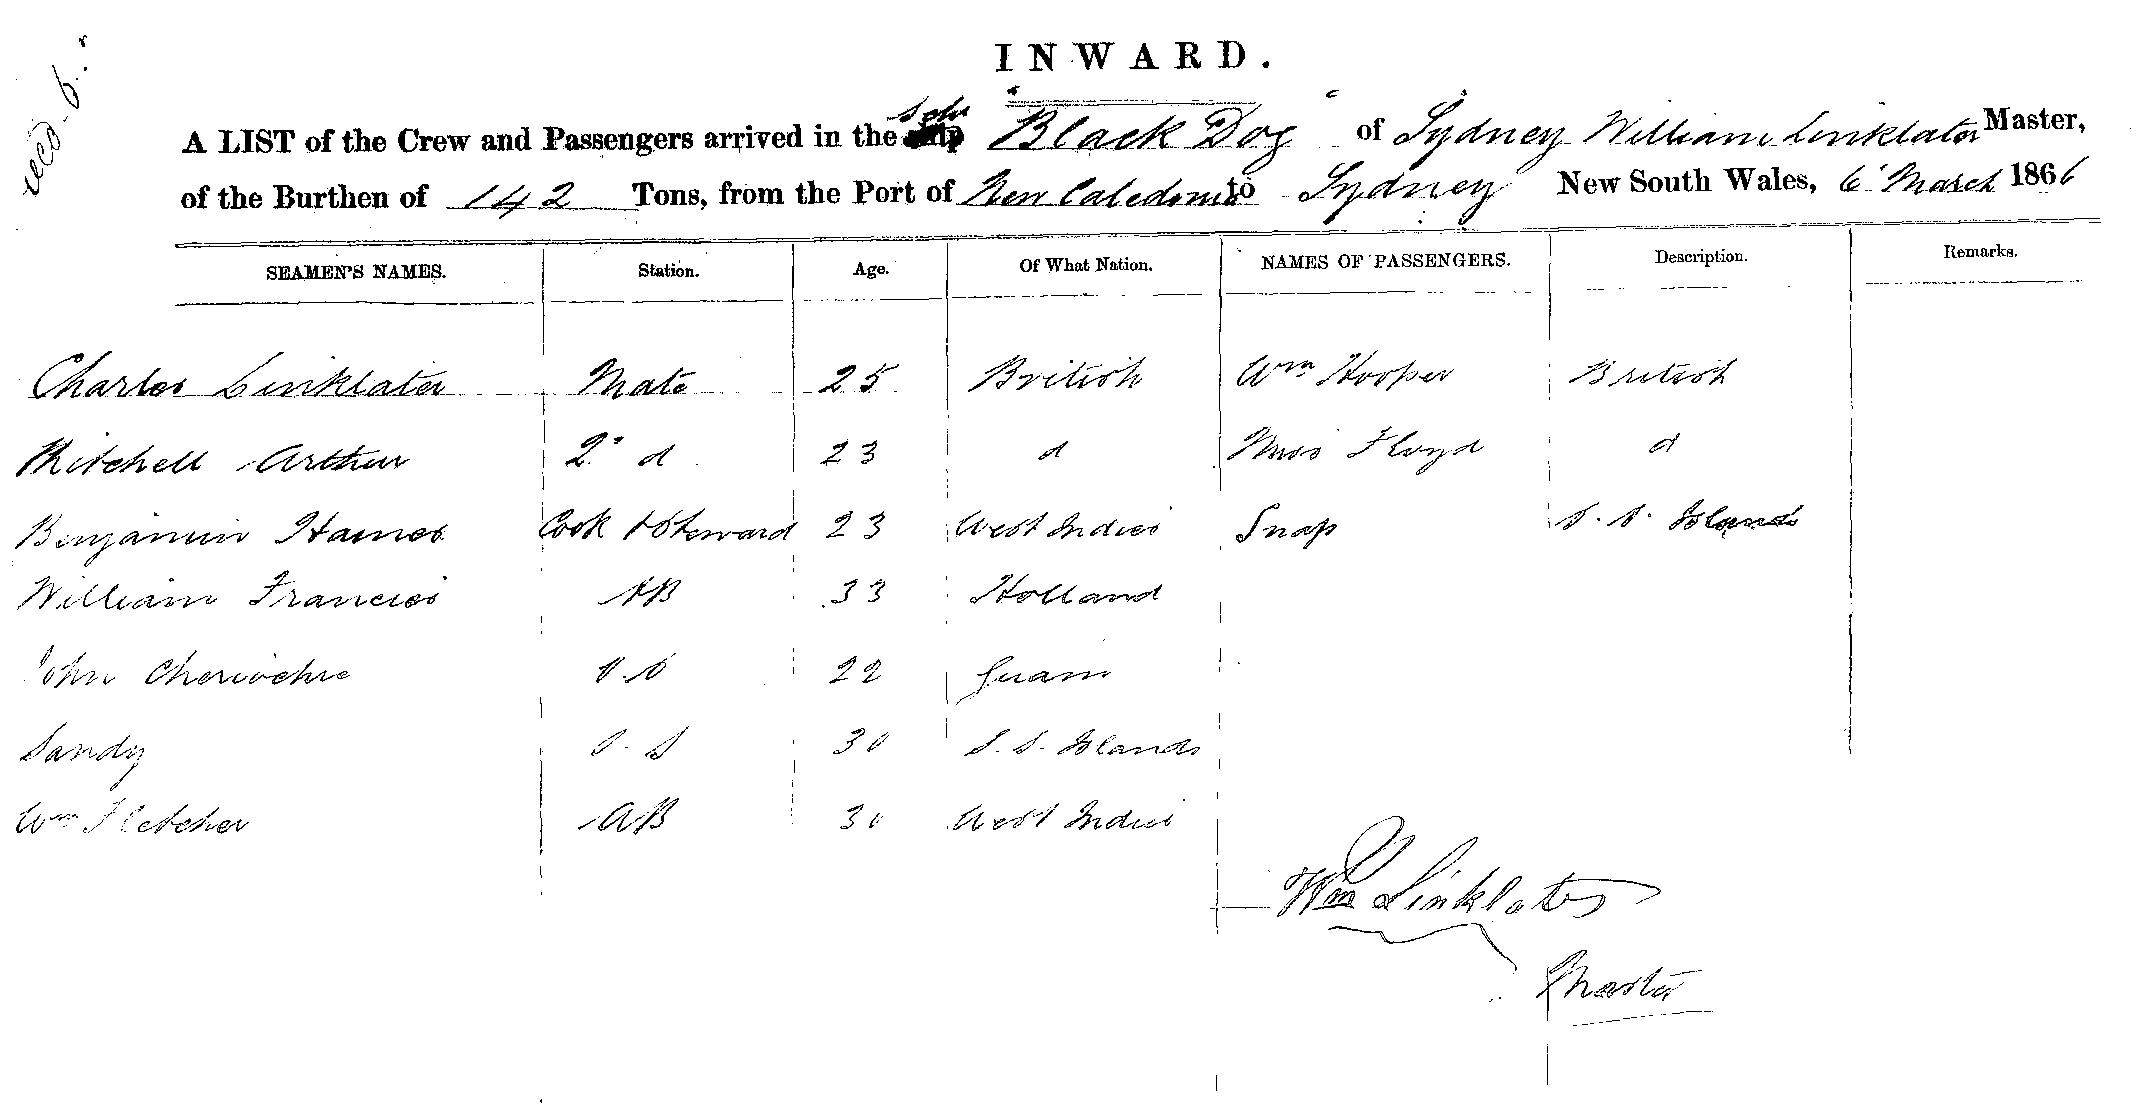 recd 6
INWARD.
A LIST of the Crew and Passengers arrived in the Schr Black Dog of Sydney William Linklater Master,
of the Burthen of 142 Tons, from the Port of New Caledonia to Sydney New South Wales, 6 March 1866
SEAMEN'S NAMES. Station. Age. Of What Nation. NAMES OF PASSENGERS. Description. Remarks.
Charles Linklater Mate 25 British Wm Hooper British
Mitchell Arthur 2 d 23 d Miss Floyd d
Benjamin Haines Cook & Steward 23 West Indies Snap S. S. Islands
William Francies AB 33 Holland
John 22 Guam
Sandy 30 S. S. Islands
Wm Fletcher AB 30 West Indies
Wm Linklater
Master